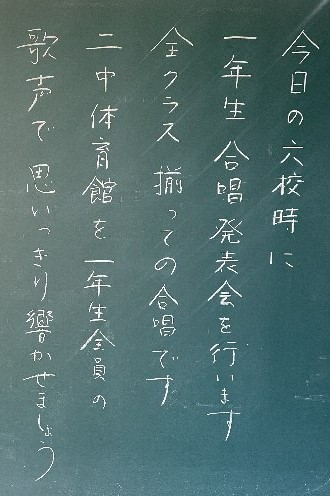 今日の六校時に
一年生 合唱発表会を行います
全クラス 揃っての合唱です
二中体育館を一年生全員の
歌声で 思いっきり響かせましょう